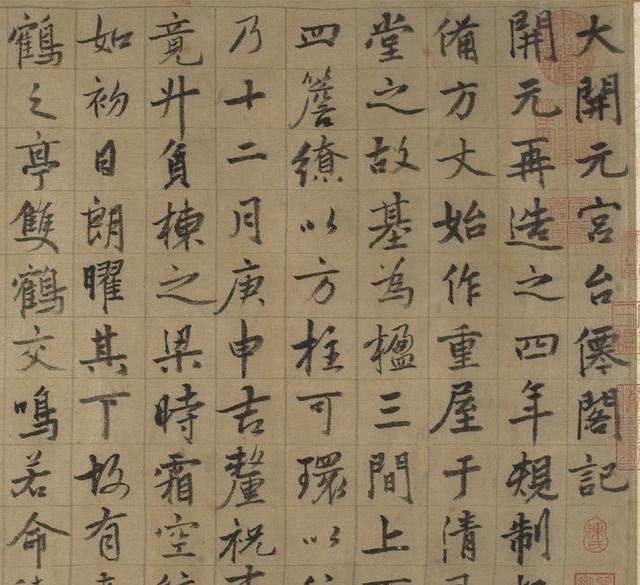 大開元宮台僊閣記
開元再造之四年規制
備方丈始作重屋于清
堂之故基為楹三間上
四簷繚以方柱可環以
乃十二月庚申吉釐祝
竟廾負棟之梁時霜空
如礿日朗曜其下故有
鶴之亭雙鶴交鳴若命